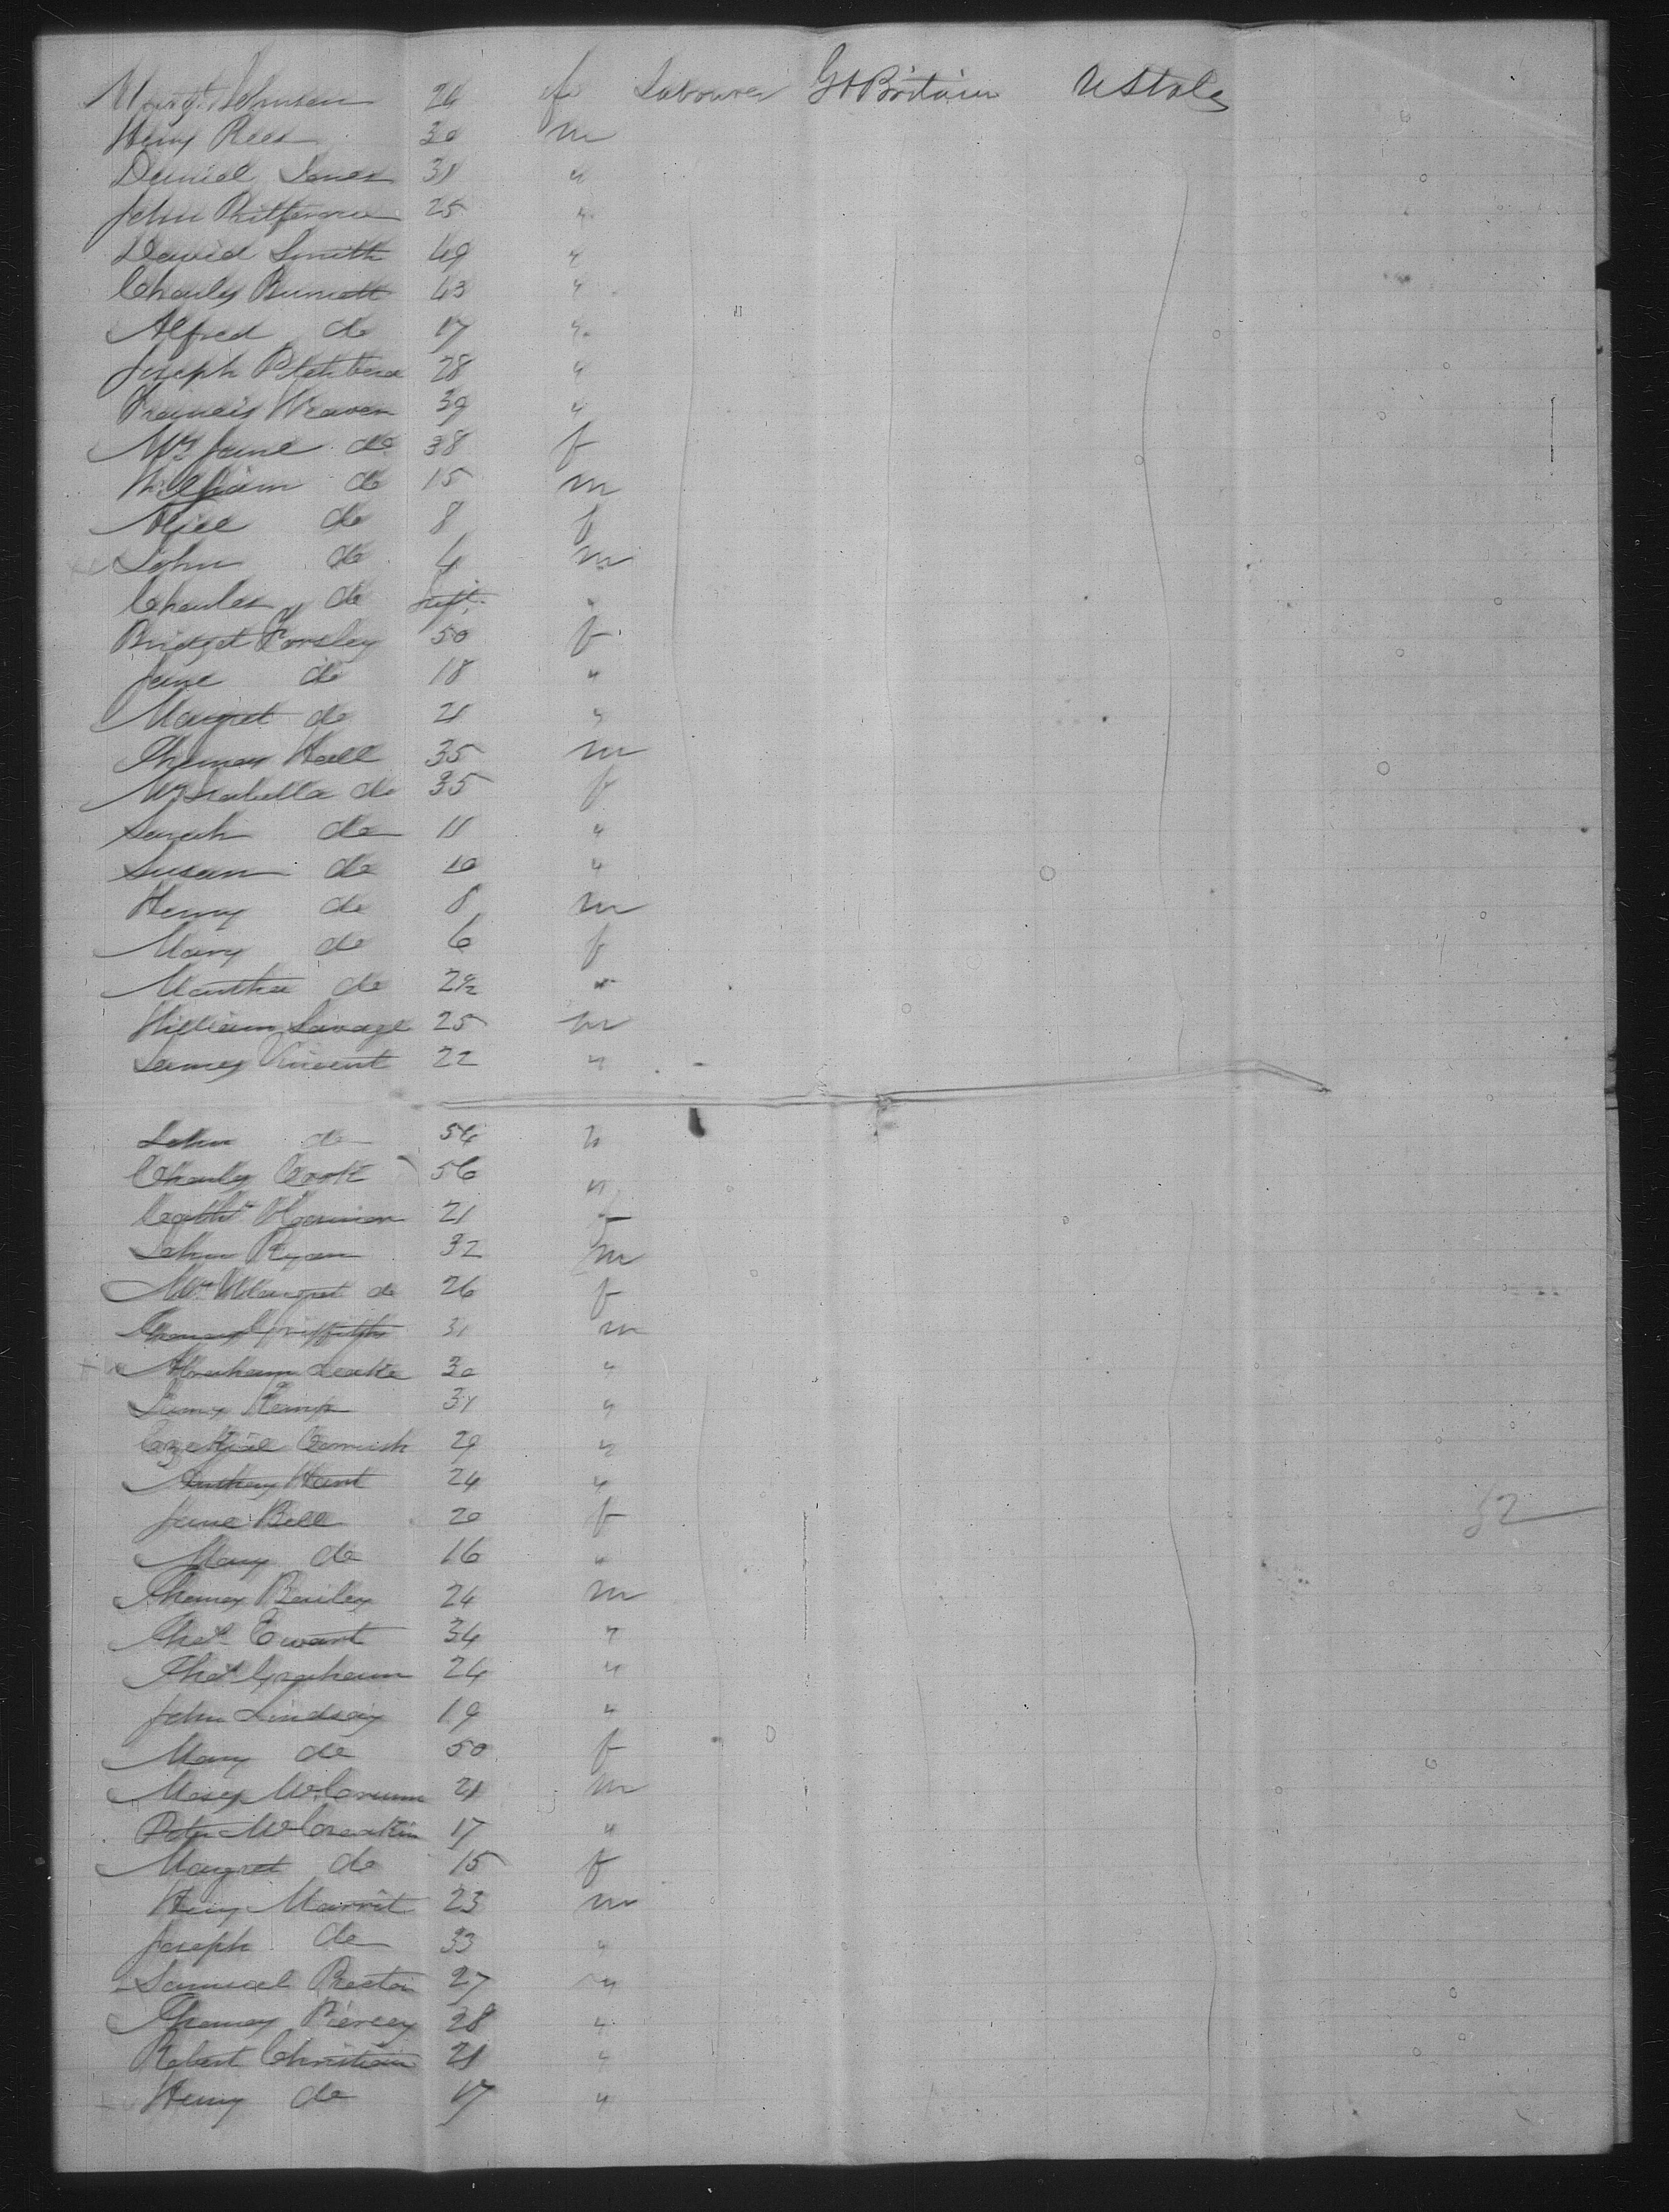 Margt Johnson 24 f Labourer Gt Britain U States
Henry Rees 30 m
Daniel Jones 31 "
John 25 "
David Smith 49 "
Charles Burnett 43 "
Alfred do 17 "
Joseph 28 "
Francis Weaver 39 "
Mrs Jane do 38 f
William do 15 m
Alice do 8 f
John do 4 m
Charles do Inft "
Bridget Corsley 50 f
Jane do 18 "
Margret do 21 "
Thomas Hall 35 m
Mrs Isabella do 35 f
Sarah do 11 "
Susan do 10 "
Henry do 8 m
Mary do 6 f
Martha do 2½ "
William Savage 25 m
James Vincent 22 "
John do 54 "
Charles Cook 56 "
Cathe 21 f
John Ryan 32 m
Mrs Margret do 26 f
Thomas Griffiths 31 m
Abraham Leake 30 "
James Kemp 31 "
Ezekiel Cornish 29 "
Anthony Hunt 24 "
Jane Bell 20 f
Mary do 16 "
Thomas Bailey 24 m
Thos Ewart 34 "
Thos Graham 24 "
John Lindsay 19 "
Mary do 50 f
Moses 21 m
Peter McCreakin 17 "
Margret do 15 f
Henry Marrit 23 m
Joseph do 33 "
Samuel Rector 27 "
Thomas Piercey 28 "
Robert Christian 21 "
Henry do 17 "
52